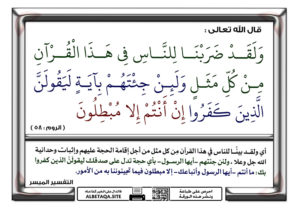 قال الله تعالى :
وَلَقَدْ ضَرَبْنَا لِلنَّاسِ فِى هَٰذَا الْقُرْآنِ
مِنْ كُلِّ مَثَلٍ وَلَئِنْ جِئْتَهُمْ بِآيَةٍ لَيَقُولَنَّ
الَّذِينَ كَفَرُوا إِنْ أَنْتُمْ إِلا مُبْطِلُونَ
( الروم : ٥٨ )
أي ولقد بينَّا للناس في هذا القرآن من كل مثل من أجل إقامة الحجة عليهم وإثبات وحدانية
الله جل وعلا ، ولئن جئتهم -أيها الرسول- بأي حجة تدل على صدقك ليقولنَّ الذين كفروا
بك: ما أنتم -أيها الرسول وأتباعك- إلا مبطلون فيما تجيئوننا به من الأمور.
التفسير الميسر
احرص على طباعة
ونشر هذه الورقة
ALBETAQA.SITE